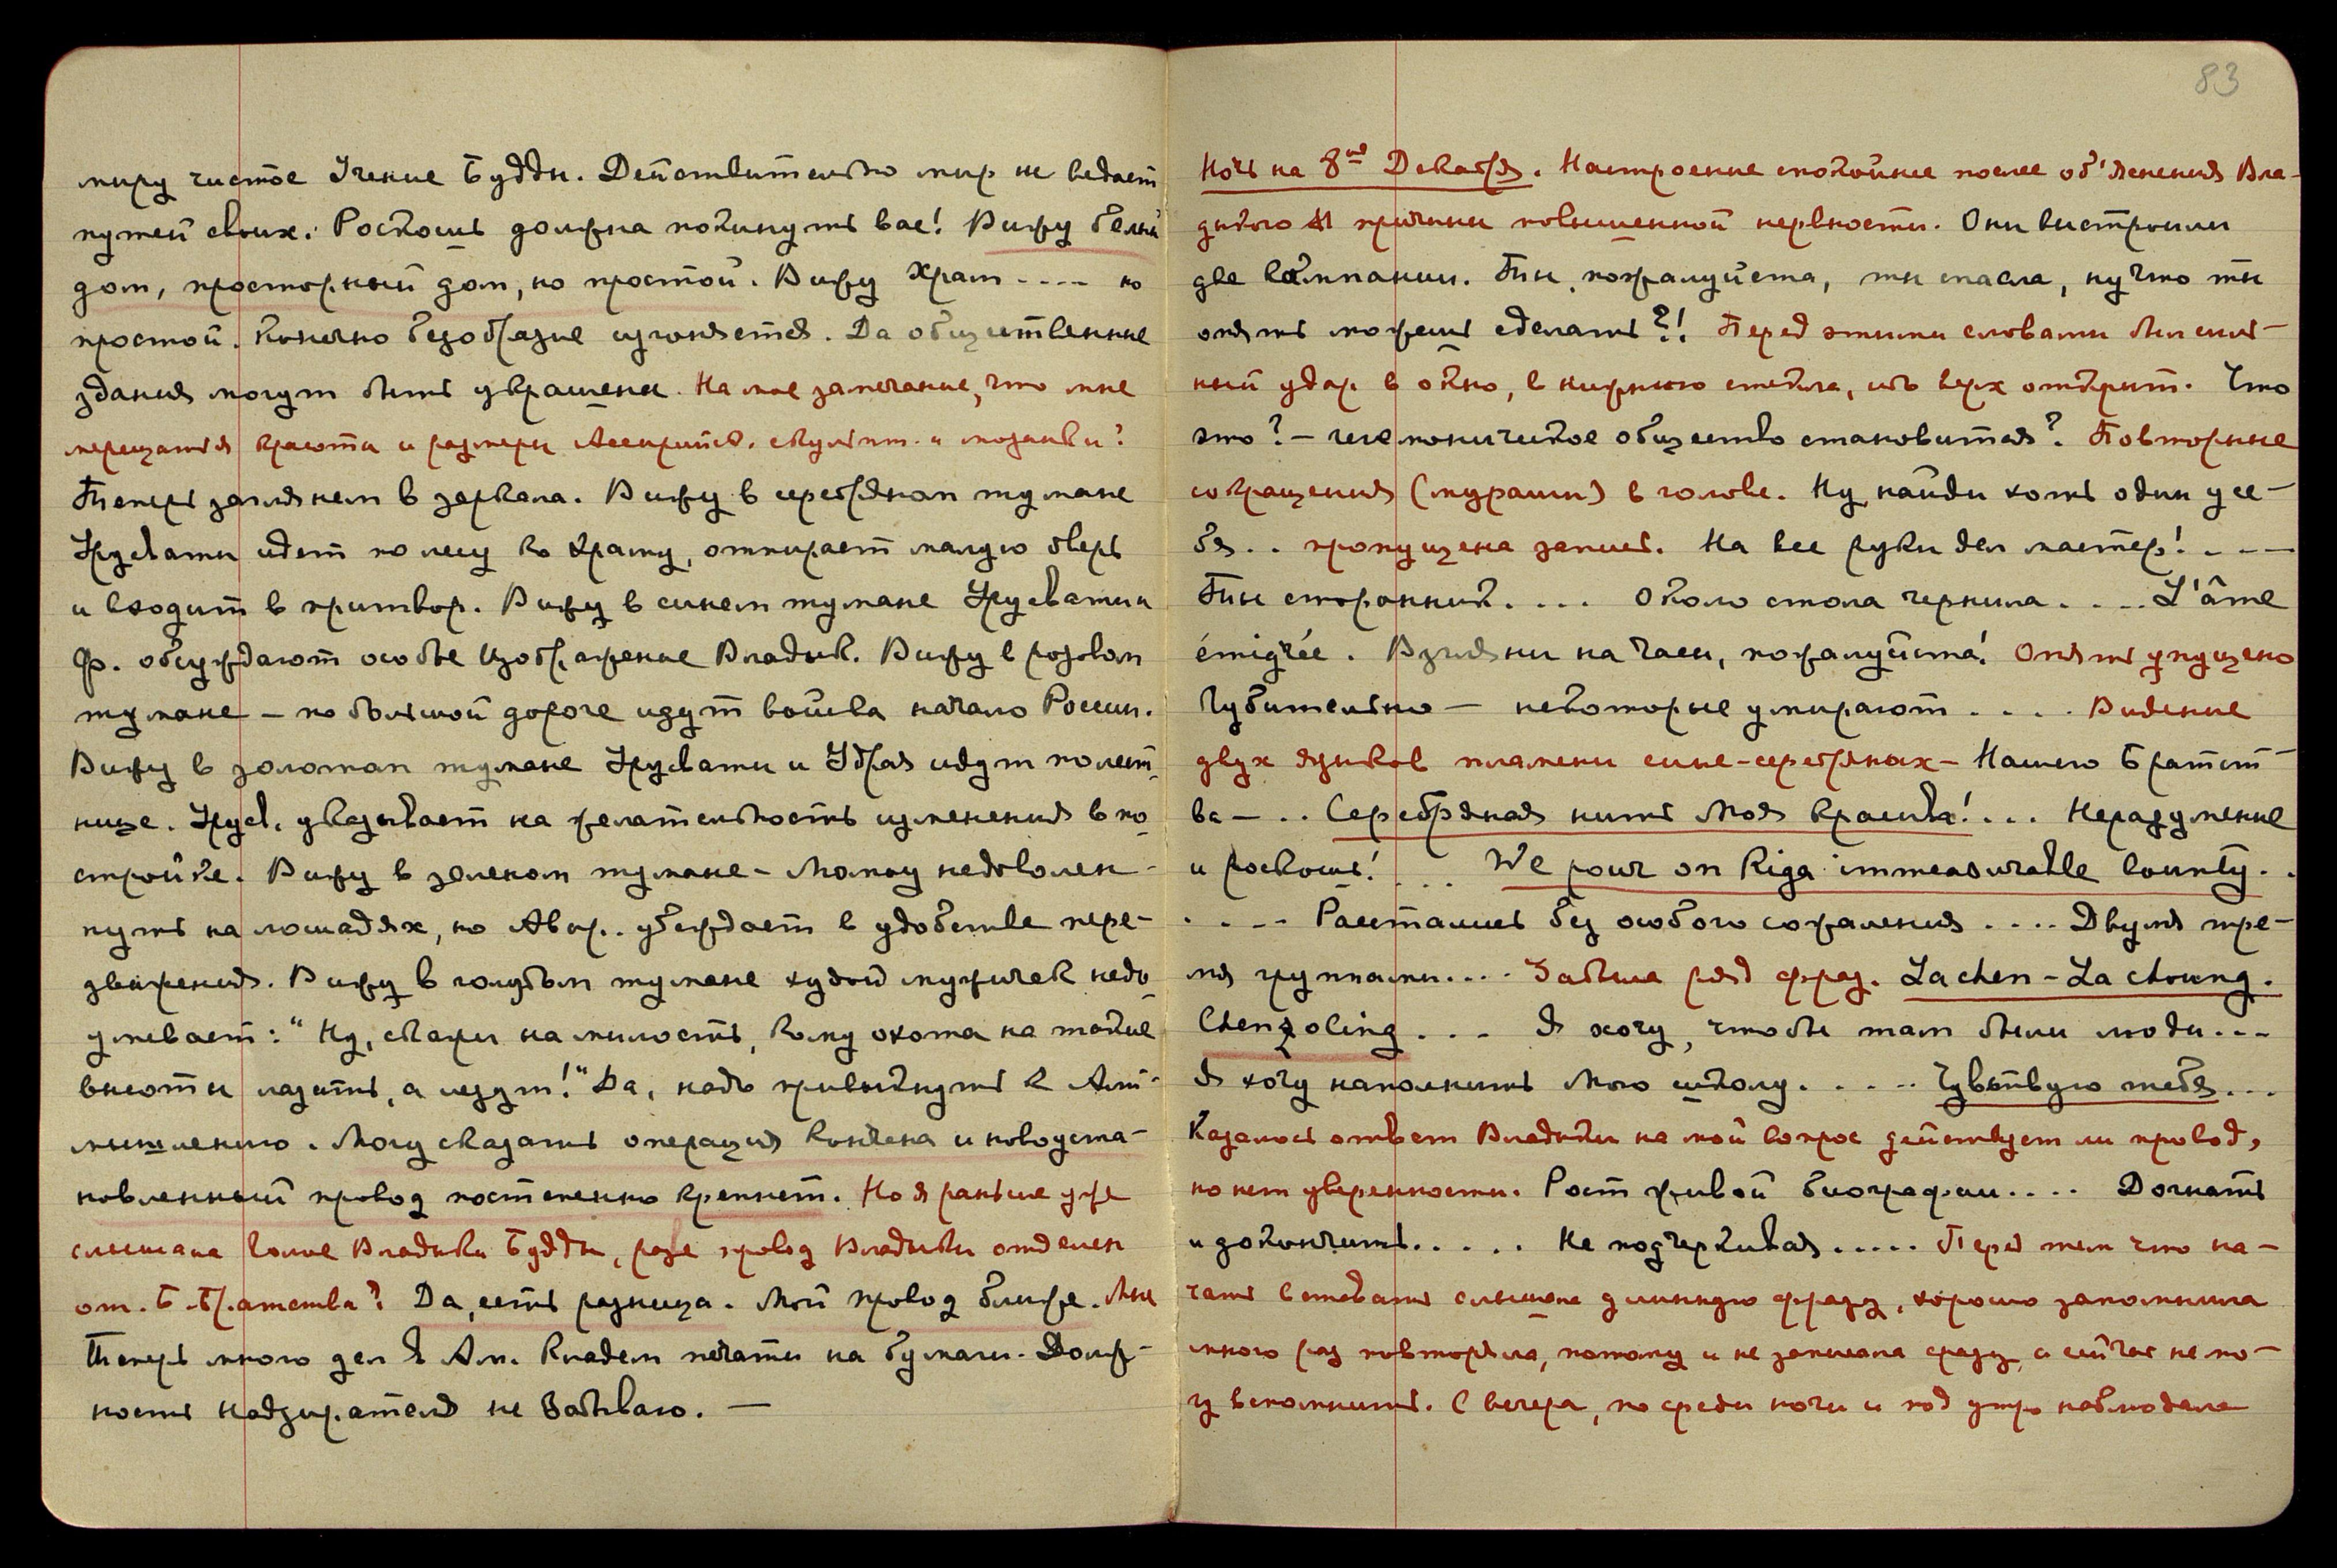 миру чистое Учение Будды. Действительно мир не ведает
путей своих. Роскошь должна покинуть вас! Вижу белый
дом, просторный дом, но простой. Вижу Храм .... но
простой. Конечно безобразие изгоняется. Да общественные
здания могут быть украшены. На мое замечание, что мне
мерещатся красоты и размеры Ассирийск. скульпт. и мозаики?
Теперь заглянем в зеркала. Вижу в серебряном тумане
Урусвати идет по лесу ко храму, отпирает малую дверь
и входит в притвор. Вижу в синем тумане Урусвати и
Ф. обсуждают особое Изображение Владык. Вижу в розовом
тумане – по большой дороге идут войска начало России.
Вижу в золотом тумане Урусвати и Удрая идут по лест-
нице. Урус. указывает на желательность изменения в по-
стройке. Вижу в зеленом тумане – Мориу недоволен
путь на лошадях, но Авир. убеждает в удобстве пере-
движения. Вижу в голубом тумане худой мужичек недо-
умевает: "Ну, скажи на милость, кому охота на такие
высоты лазить, а лезут!" Да, надо привыкнуть к Алт-
мышлению. Могу сказать операция кончена и новоуста-
новленный провод постепенно крепнет. Но я раньше уже
слышала голос Владыки Будды, разе провод Владыки отделен
от. Б. Братства? Да, есть разница. Мой провод ближе. Мы
Теперь много дел в Ам. Кладем печати на бумаги. Долж-
ность надзирателя не забываю. —
83
Ночь на 8ое Декабря. Настроение спокойнее после об'яснения Вла-
дыкою причины повышенной нервности. Они выстроили
две кампании. Ты, пожалуйста, ты спасла, ну что ты
опять можешь сделать?! Перед этими словами был силь-
ный удар в окно, в нижнюю стекла, ибо верх открыт. Что
это? – гегемоническое общество становится? Повторные
сокращения (мурашки) в голове. Ну, найди хоть один у се-
бя.. пропущена запись. На все руки дел мастер! ...
Ты сторонний.... Около стола чернила.... L'âme
émigrée. Взгляни на часы, пожалуйста! Опять упущено
Губительно – некоторые умирают .... Видение
двух языков пламени сине-серебряных – Нашего Братст-
ва – .. Серебряная нить Моя красива! ... Неразумение
и роскошь! ... We pour on Riga immeasurable bounty..
.... Расстались без особого сожаления .... Двумя тре-
мя группами.... Забыла ряд фраз. Lachen – La choung.
Chenzoling ... Я хочу, чтобы там были люди ...
Я хочу наполнить Мою школу. .... Чувствую тебя ...
Казалось ответ Владыки на мой вопрос действует ли провод,
но нет уверенности. Рост живой биографии.... Догнать
и докончить..... Не подчеркивая ..... Перед тем что на-
чать вставать слышала длинную фразу, хорошо запомнила
много раз повторяла, потому и не записала сразу, а сейчас не мо-
гу вспомнить. С вечера, по среди ночи и под утро наблюдала